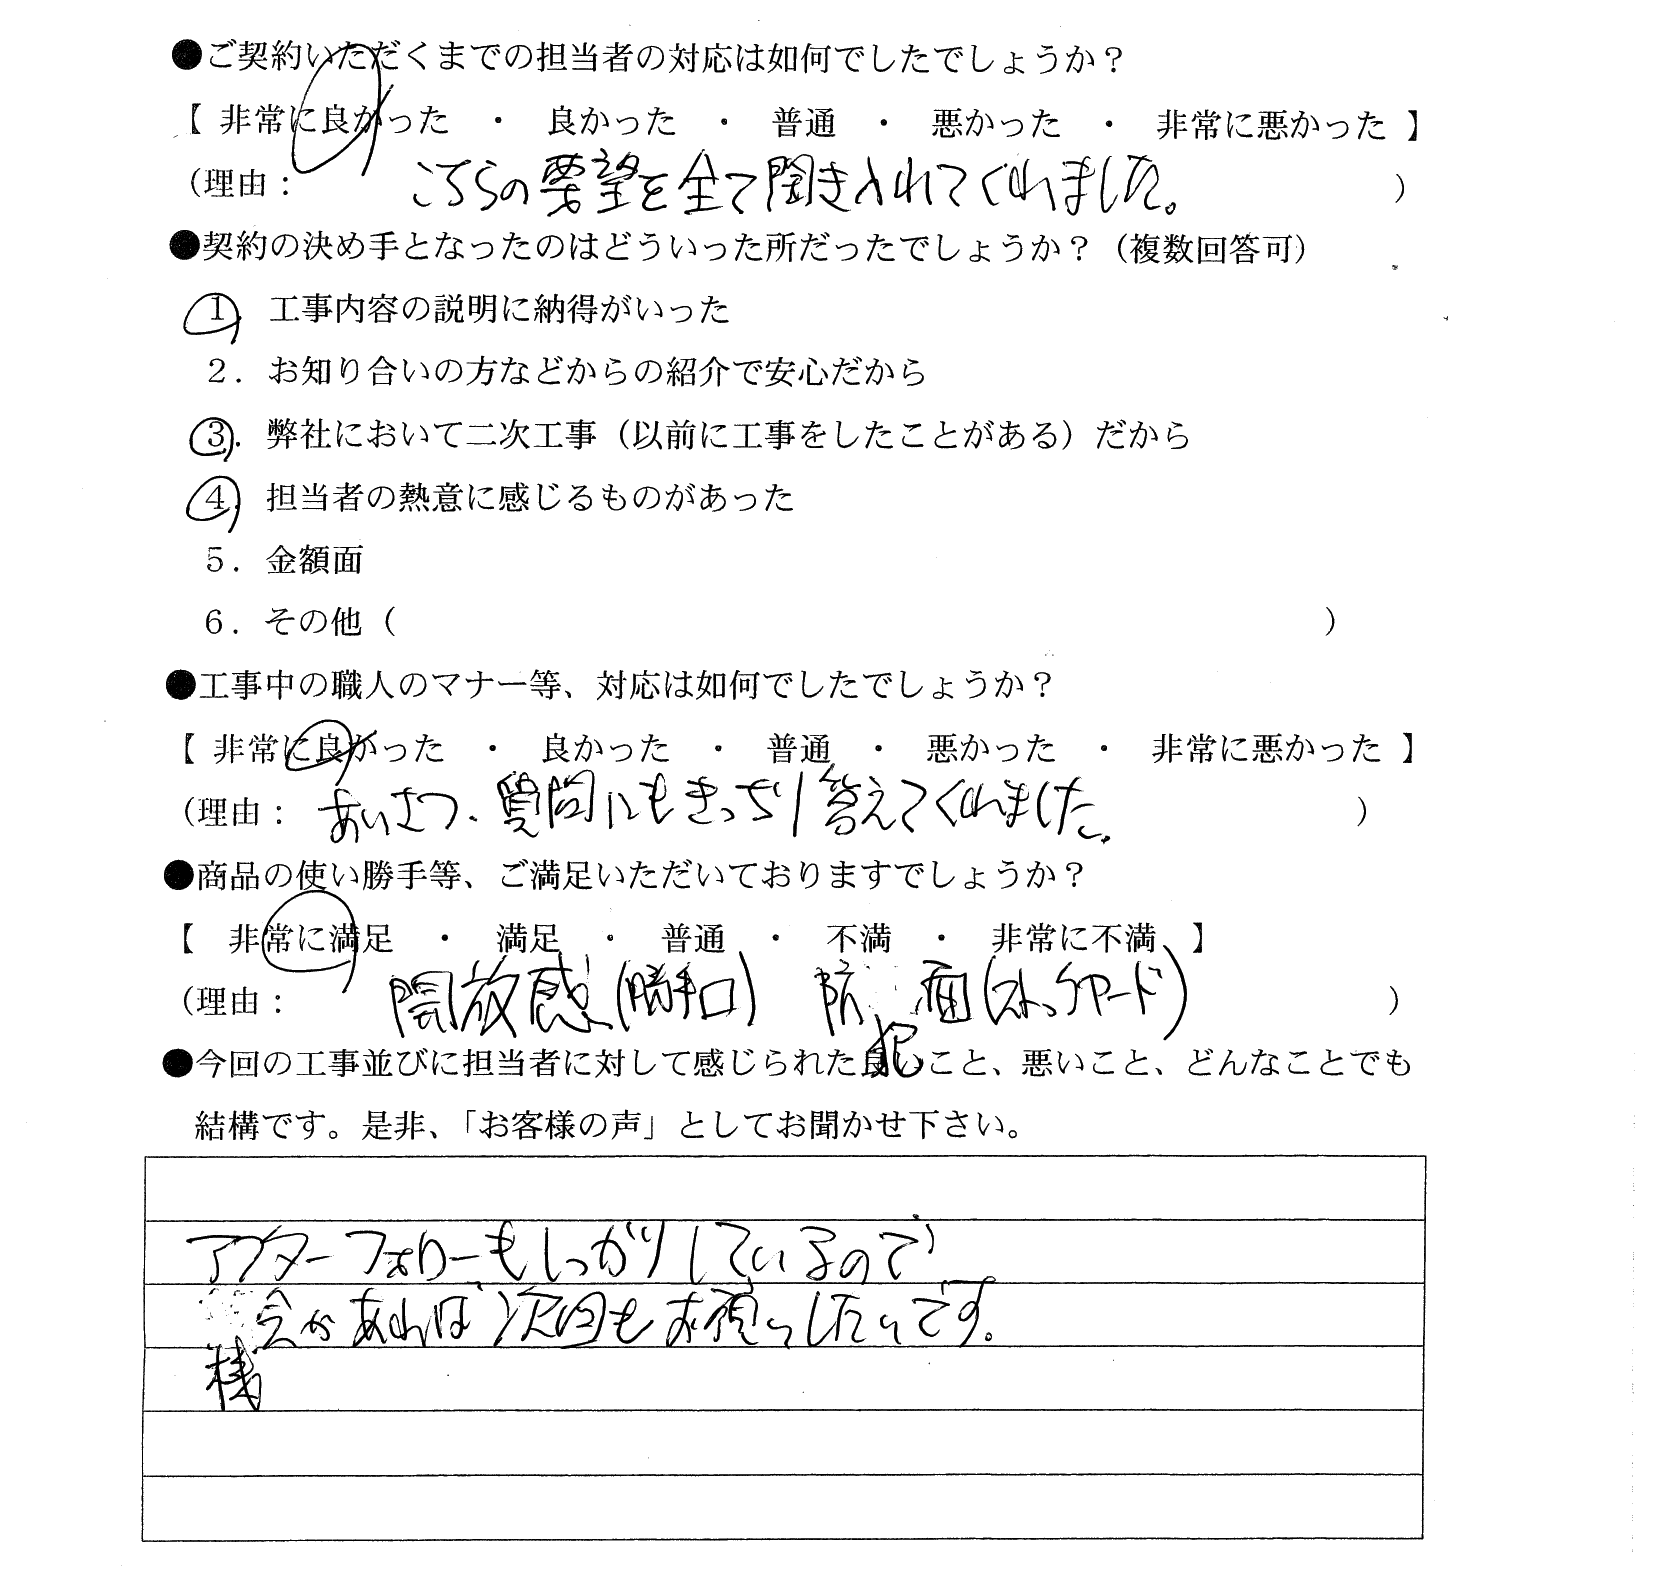 ●ご契約いただくまでの担当者の対応は如何でしたでしょうか？
【 非常に良かった ・ 良かった ・ 普通 ・ 悪かった ・ 非常に悪かった 】
（理由： こちらの要望を全て聞き入れてくれました。 ）
●契約の決め手となったのはどういった所だったでしょうか？（複数回答可）
１．工事内容の説明に納得がいった
２．お知り合いの方などからの紹介で安心だから
３．弊社において二次工事（以前に工事をしたことがある）だから
４．担当者の熱意に感じるものがあった
５．金額面
６．その他（ ）
●工事中の職人のマナー等、対応は如何でしたでしょうか？
【 非常に良かった ・ 良かった ・ 普通 ・ 悪かった ・ 非常に悪かった 】
（理由： あいさつ、質問にもきっちり答えてくれました。 ）
●商品の使い勝手等、ご満足いただいておりますでしょうか？
【 非常に満足 ・ 満足 ・ 普通 ・ 不満 ・ 非常に不満 】
（理由： 開放感（勝手口） 防犯面（ストックヤード） ）
●今回の工事並びに担当者に対して感じられた良いこと、悪いこと、どんなことでも
結構です。是非、「お客様の声」としてお聞かせ下さい。
アフターフォローもしっかりしているので
機会があれば次回もお願いしたいです。